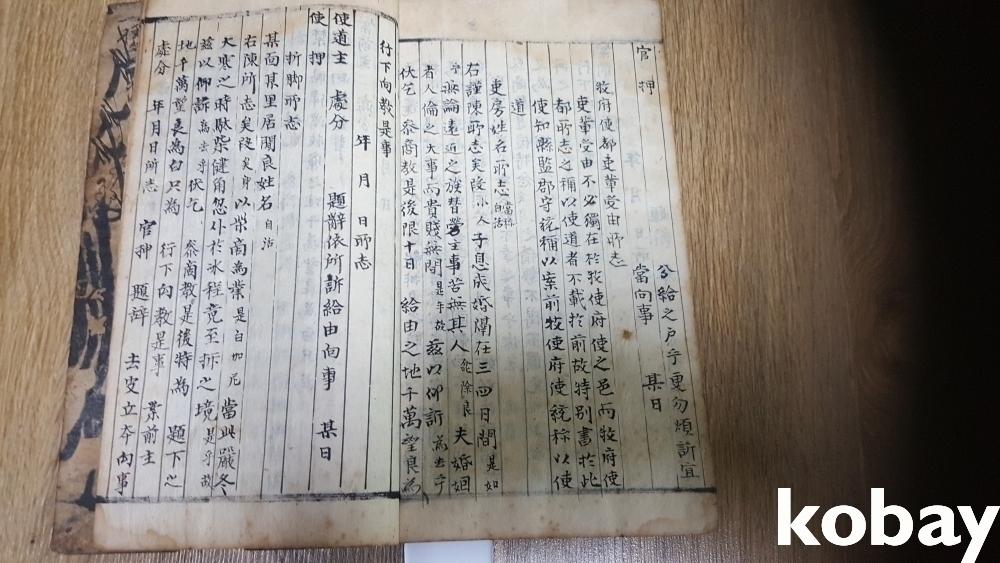 兮給之戶乎更勿煩訴宜
當向事 某日
官押
牧府使都吏輩受由所志
吏輩受由不必獨在於牧使府使之邑而牧府使
都所志之稱以使道者不載於前故特別書於此
使知縣監郡守統稱以案前牧使府使統稱以使
道
吏房姓名所志
右謹陳所志矣段小人子息成婚隔在三四日間是如
乎無論遠近之族替勞主事苦無其人 除良夫婚姻
者人倫之大事而貴賤無間是乎故玆以仰訴爲去乎
伏乞參商敎是後限十日給由之地千萬望良爲
行下向敎是事
年月日所志
使道主處分 題辭依所訴給由向事 某日
使押
折脚所志
某面某里居閑良姓名
右陳所志矣段矣身以柴商爲業是白如
當此嚴冬
大寒之時馱柴健角忽仆於氷程竟至折之境是乎故
玆以仰訴爲去乎伏乞參商敎是後特爲題下之
地千萬望良爲白只爲行下向敎是事
處分 年月日所志 官押 題辭 去皮立本向事
案前主
kobay